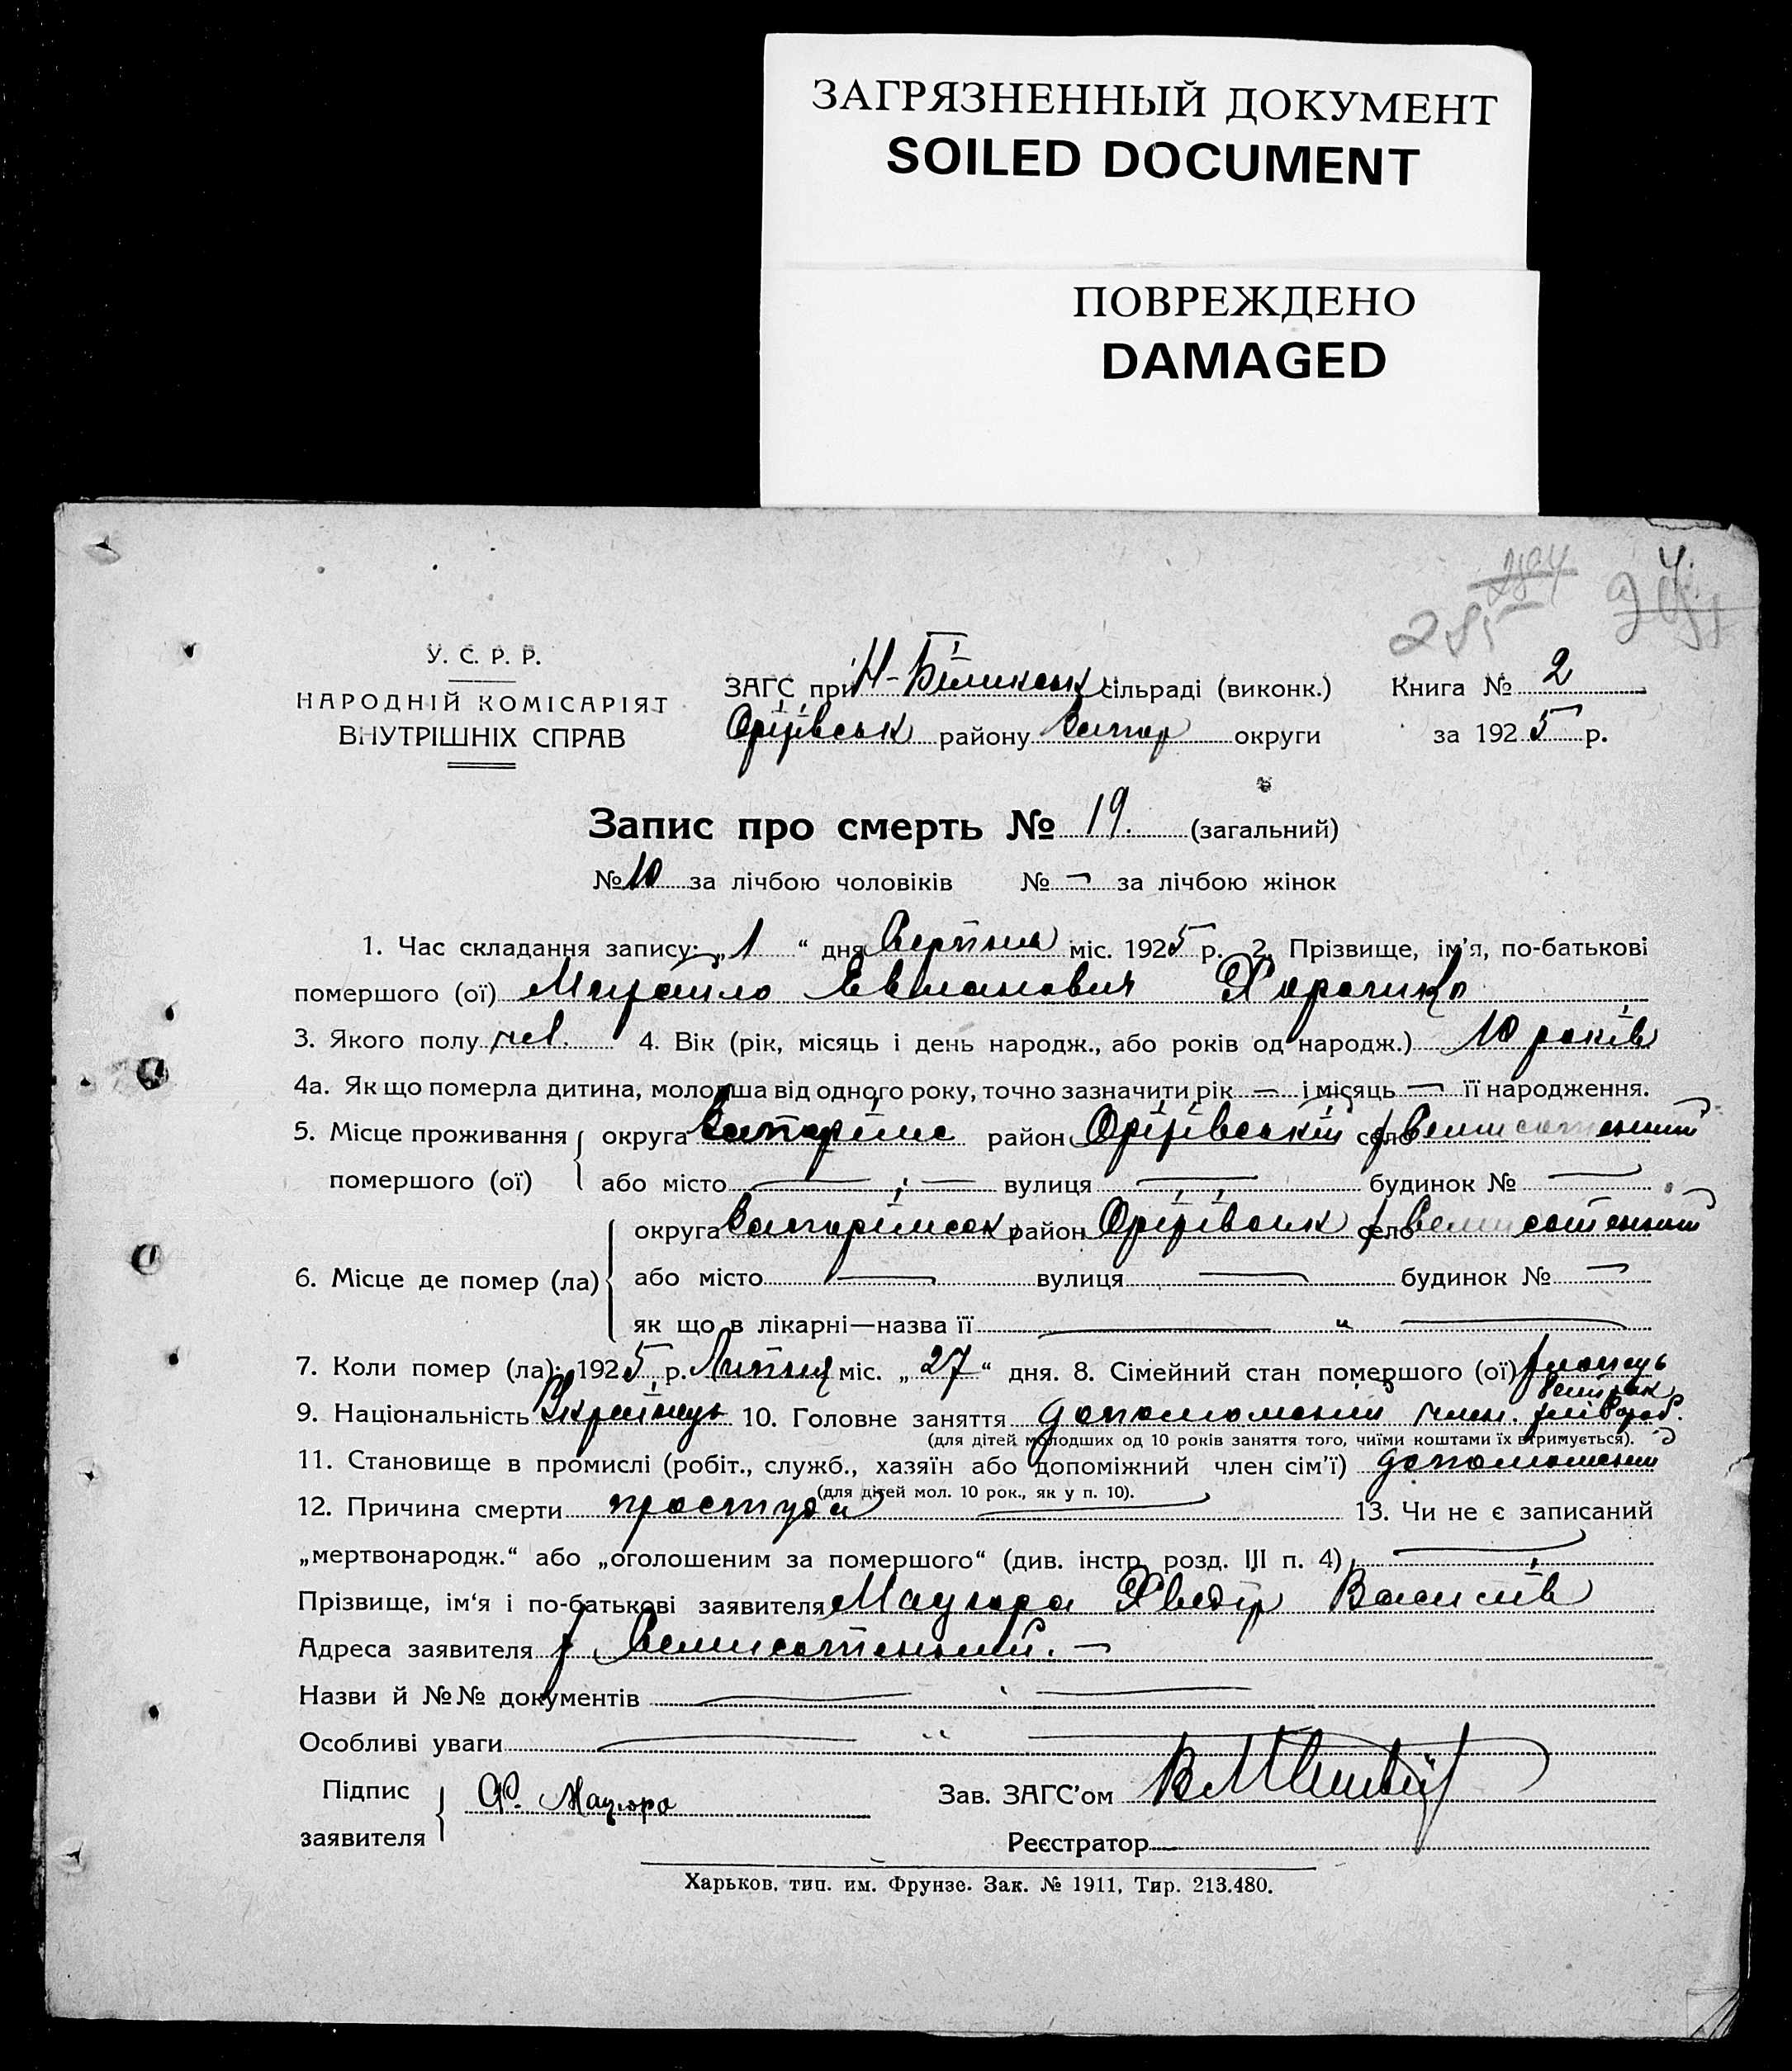 ЗАГРЯЗНЕННЫЙ ДОКУМЕНТ
SOILED DOCUMENT
ПОВРЕЖДЕНО
DAMAGED
285
У. С. Р. Р.
НАРОДНІЙ КОМІСАРІЯТ
ВНУТРІШНІХ СПРАВ
ЗАГС при сільраді (виконк.) Книга № 2
Оріхівськ району Запор округи за 1925 р.
Запис про смерть № 19. (загальний)
№ 10 за лічбою чоловіків № — за лічбою жінок
1. Час складання запису: „1“ дня Серпня міс. 1925 р. 2. Прізвище, ім'я, по-батькові
помершого (ої) Михайло
3. Якого полу чол. 4. Вік (рік, місяць і день народж., або років од народж.) 10 років
4а. Як що померла дитина, молодша від одного року, точно зазначити рік — і місяць — її народження.
5. Місце проживання помершого (ої) округа район Оріхівський село
або місто — вулиця — будинок № —
6. Місце де помер (ла) округа район Оріхівськ село
або місто — вулиця — будинок № —
як що в лікарні—назва її — „ —
7. Коли помер (ла): 1925 р. Липня міс. „27“ дня. 8. Сімейний стан помершого (ої)
9. Національність Українець 10. Головне заняття допоможний член.
(для дітей молодших од 10 років заняття того, чиїми коштами їх втримується).
11. Становище в промислі (робіт., служб., хазяїн або допоміжний член сім'ї) допоможний
(для дітей мол. 10 рок., як у п. 10).
12. Причина смерти простуда — 13. Чи не є записаний
„мертвонародж.“ або „оголошеним за помершого“ (див. інстр. розд. III п. 4) —
Прізвище, ім'я і по-батькові заявителя Мацюра Хведір Василів
Адреса заявителя
Назви й №№ документів —
Особливі уваги —
Підпис заявителя Ф. Мацюра Зав. ЗАГС'ом
Реєстратор
Харьков, тип. им. Фрунзе. Зак. № 1911, Тир. 213.480.